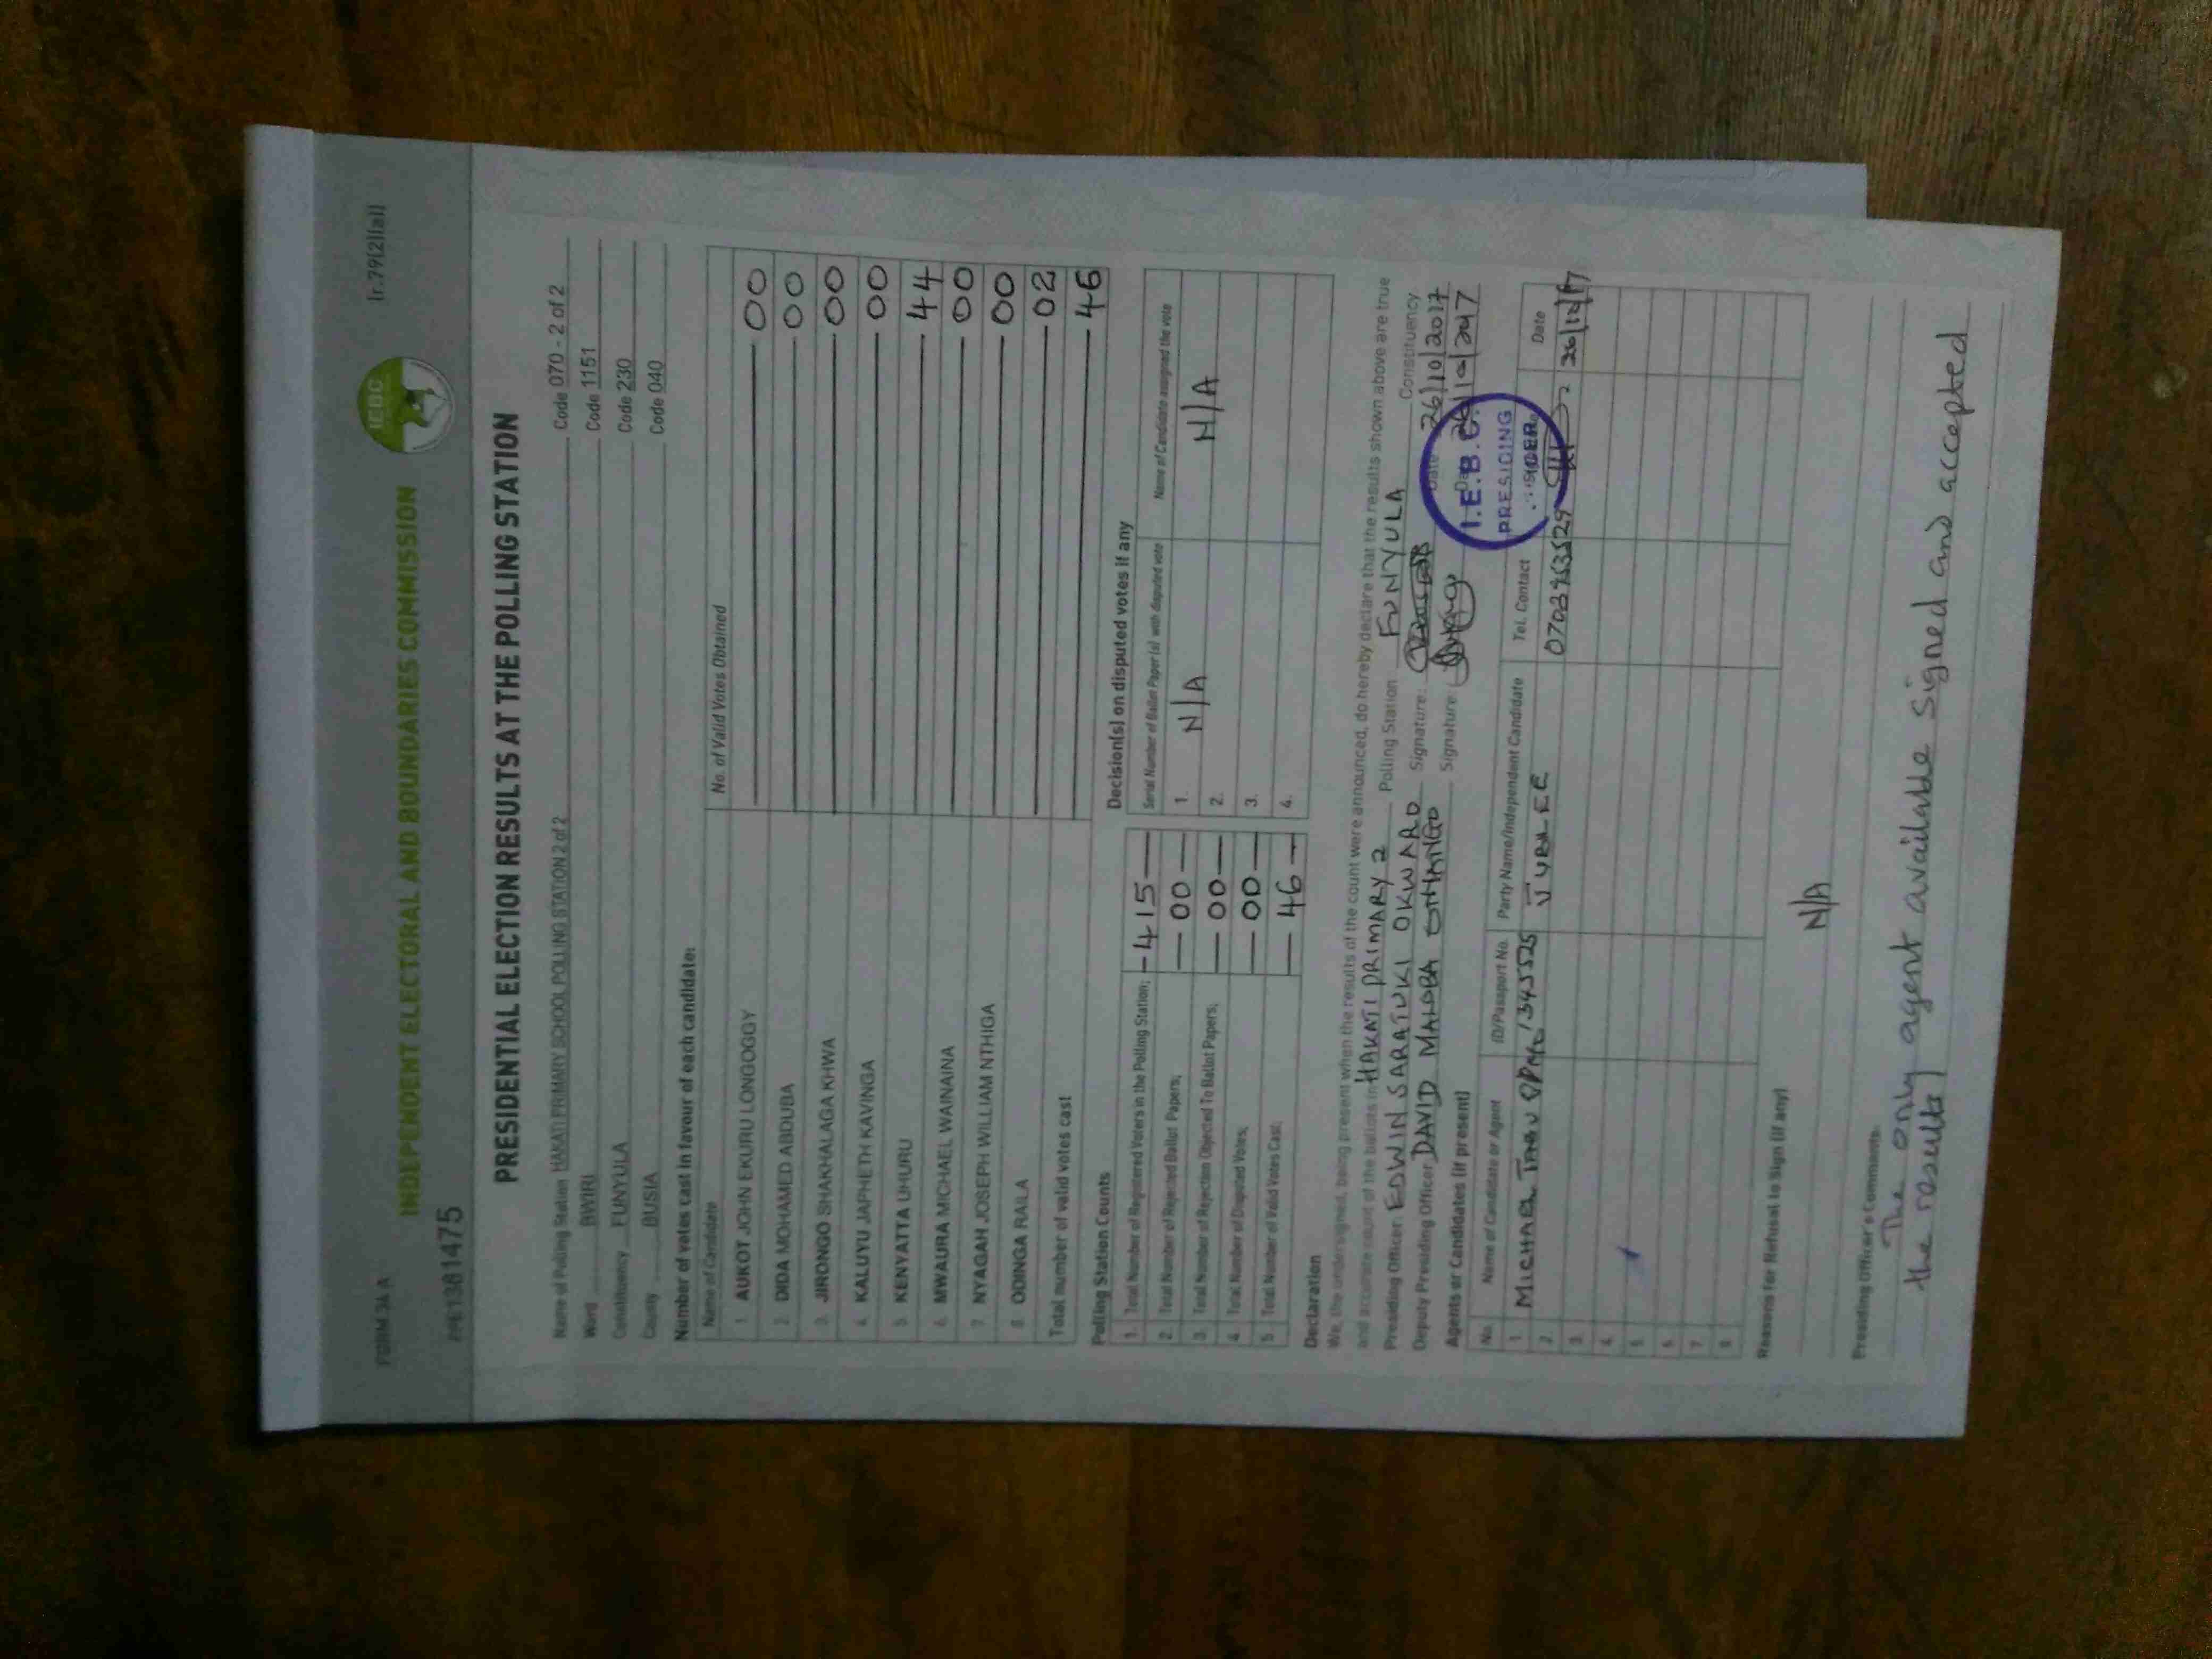 FORM 34A
(r.79(2)(a))
INDEPENDENT ELECTORAL AND BOUNDARIES COMMISSION
IEBC
PRESIDENTIAL ELECTION RESULTS AT THE POLLING STATION
Name of Polling Station HAKATI PRIMARY SCHOOL POLLING STATION 2 of 2 Code 070 - 2 of 2
Ward BWIRI Code 1151
Constituency FUNYULA Code 230
County BUSIA Code 040
Number of votes cast in favour of each candidate:
Name of Candidate No. of Valid Votes Obtained
1. AUKOT JOHN EKURU LONGOGGY 00
2. DIDA MOHAMED ABDUBA 00
3. JIRONGO SHAKHALAGA KHWA 00
4. KALUYU JAPHETH KAVINGA 00
5. KENYATTA UHURU 44
6. MWAURA MICHAEL WAINAINA 00
7. NYAGAH JOSEPH WILLIAM NTHIGA 00
8. ODINGA RAILA 02
Total number of valid votes cast 46
Polling Station Counts
1. Total Number of Registered Voters in the Polling Station; 415
2. Total Number of Rejected Ballot Papers; 00
3. Total Number of Rejection Objected To Ballot Papers; 00
4. Total Number of Disputed Votes; 00
5. Total Number of Valid Votes Cast; 46
Decision(s) on disputed votes if any
Serial Number of Ballot Paper (s) with disputed vote Name of Candidate assigned the vote
1. N/A N/A
2.
3.
4.
Declaration
We, the undersigned, being present when the results of the count were announced, do hereby declare that the results shown above are true
and accurate count of the ballots in HAKATI PRIMARY 2 Polling Station FUNYULA Constituency
Presiding Officer: EDWIN SARATUKI OKWARO Signature: Date: 26/10/2017
Deputy Presiding Officer DAVID MALOBA Signature: 26/10/2017
I.E.B.C.
PRESIDING
Agents or Candidates (if present)
No. Name of Candidate or Agent ID/Passport No. Party Name/Independent Candidate Tel. Contact Date
1. MICHAEL JUBLEE 26/10/17
2.
3.
4.
5.
6.
7.
8.
Reasons for Refusal to Sign (if any)
N/A
Presiding Officer's Comments:
The only agent available signed and accepted
the results